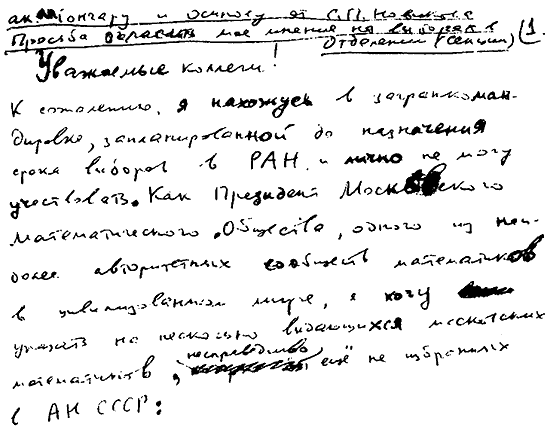 ак. Гончару и Осипову от С.П. Новикова
Просьба огласить мое мнение на выборах в
Отделении (секции) (1.
Уважаемые коллеги!
К сожалению, я нахожусь в загранкоман-
дировке, запланированной до назначения
срока выборов в РАН и лично не могу
участвовать. Как Президент Московского
математического Общества, одного из наи-
более авторитетных сообществ математиков
в цивилизованном мире, я хочу
указать на несколько выдающихся московских
математиков, несправедливо ещё не избранных
в АН СССР: